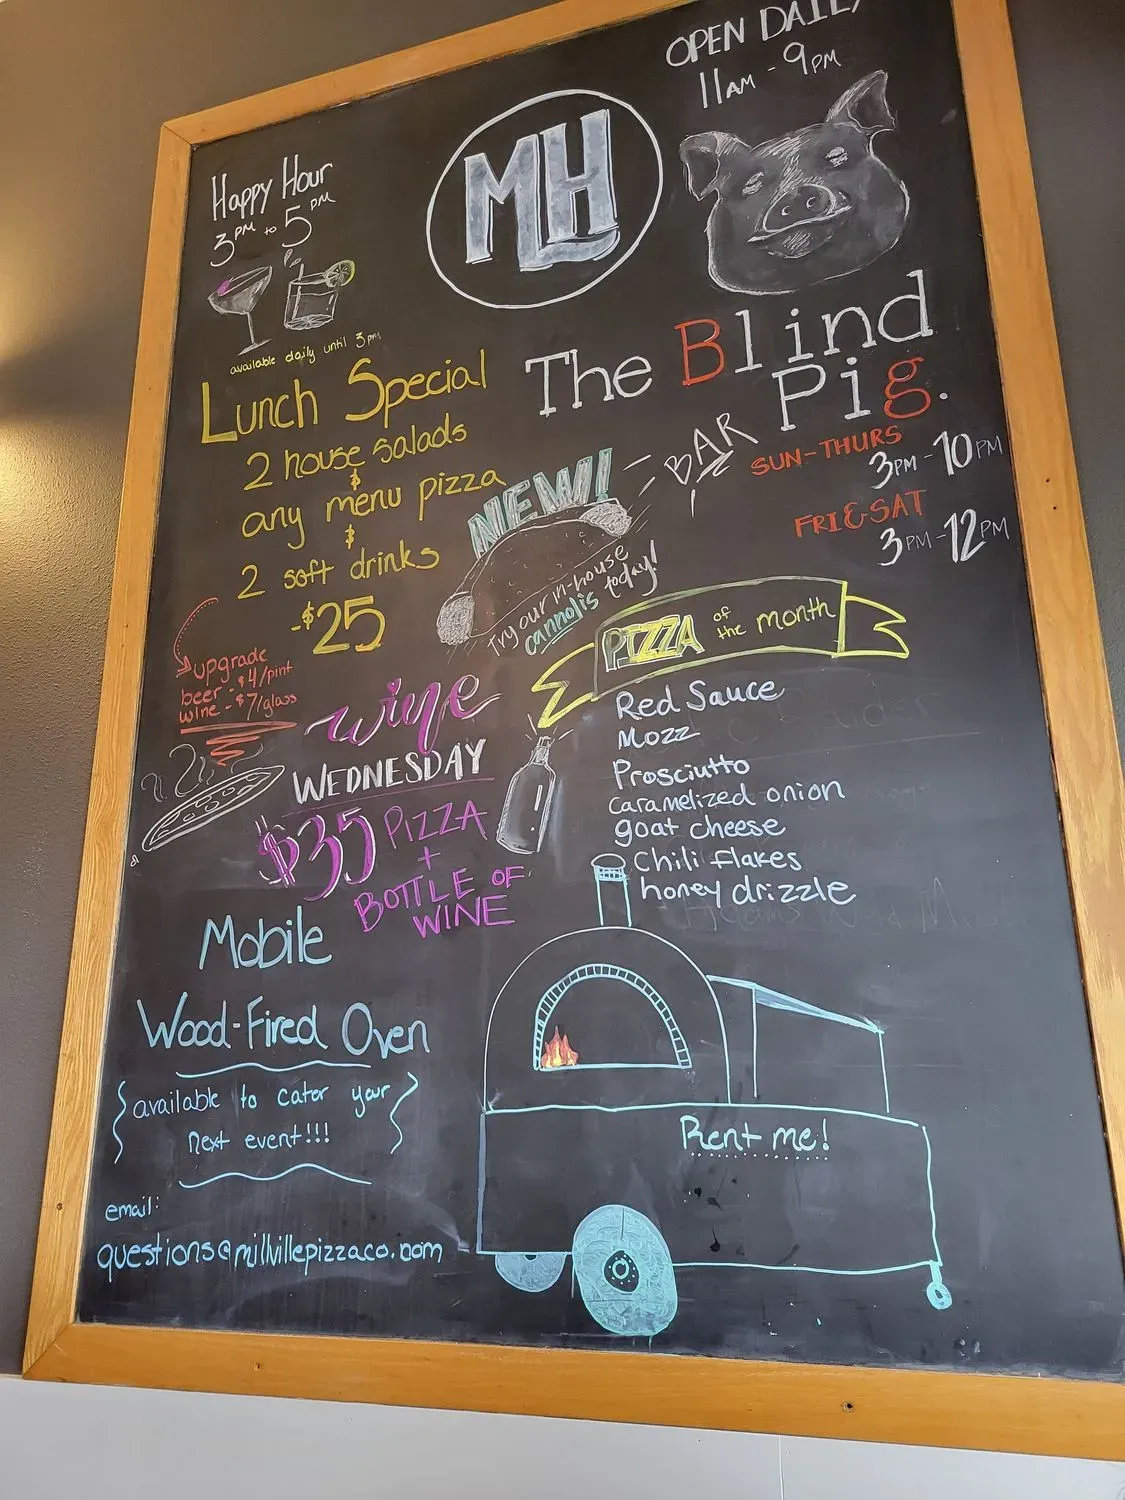 OPEN DAILY
11AM - 9PM
MH
Happy Hour
3PM to 5PM
available daily until 3pm
Lunch Special
2 house salads
&
any menu pizza
&
2 soft drinks
-$25
upgrade
beer - $4/pint
wine - $7/glass
The Blind
Pig.
- BAR
SUN-THURS
3PM - 10PM
FRI & SAT
3PM - 12PM
NEW!
Try our in-house
cannolis today!
PIZZA of the month
Red Sauce
Mozz
Prosciutto
caramelized onion
goat cheese
Chili flakes
honey drizzle
wine
WEDNESDAY
$35 PIZZA
+
BOTTLE OF
WINE
Mobile
Wood-Fired Oven
{available to cater your
next event!!!}
email:
questions@millvillepizzaco.com
Rent me!